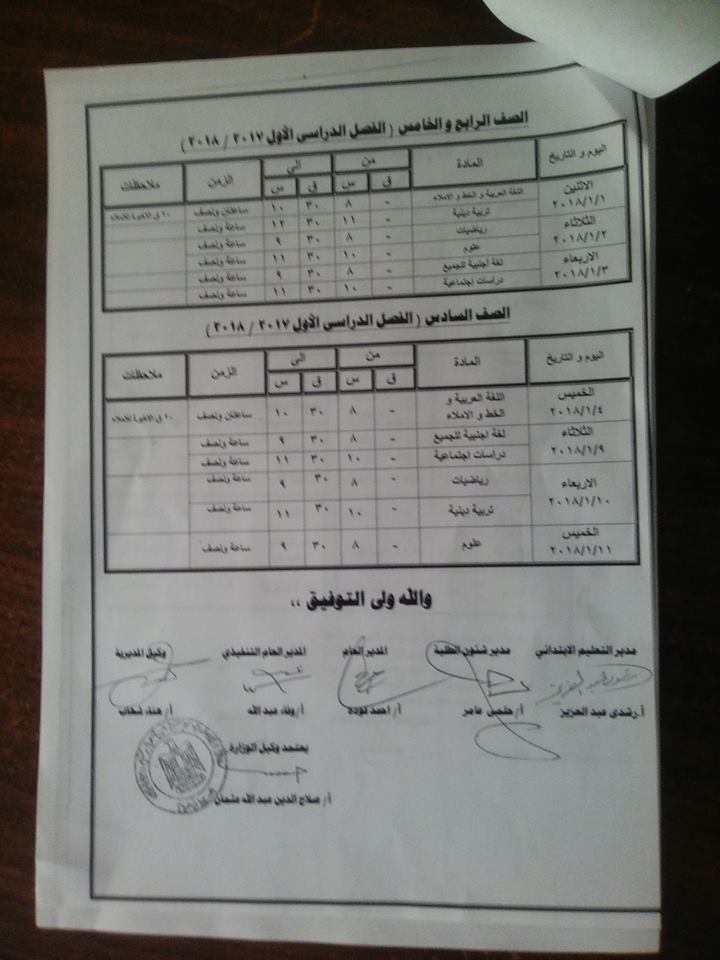 الصف الرابع والخامس ( الفصل الدراسى الأول ٢٠١٧ / ٢٠١٨ )
اليوم و التاريخ المادة من الى الزمن ملاحظات
ق س ق س
الاثنين ٢٠١٨/١/١ اللغة العربية و الخط و الاملاء - ٨ ٣٠ ١٠ ساعتان ونصف ٢٠ ق الاخيرة للاملاء
تربية دينية - ١١ ٣٠ ١٢ ساعة ونصف
الثلاثاء ٢٠١٨/١/٢ رياضيات - ٨ ٣٠ ٩ ساعة ونصف
علوم - ١٠ ٣٠ ١١ ساعة ونصف
الاربعاء ٢٠١٨/١/٣ لغة أجنبية للجميع - ٨ ٣٠ ٩ ساعة ونصف
دراسات إجتماعية - ١٠ ٣٠ ١١ ساعة ونصف
الصف السادس ( الفصل الدراسى الأول ٢٠١٧ / ٢٠١٨ )
اليوم و التاريخ المادة من الى الزمن ملاحظات
ق س ق س
الخميس ٢٠١٨/١/٤ اللغة العربية و الخط و الاملاء - ٨ ٣٠ ١٠ ساعتان ونصف ٢٠ ق الاخيرة للاملاء
الثلاثاء ٢٠١٨/١/٩ لغة اجنبية للجميع - ٨ ٣٠ ٩ ساعة ونصف
دراسات اجتماعية - ١٠ ٣٠ ١١ ساعة ونصف
الاربعاء ٢٠١٨/١/١٠ رياضيات - ٨ ٣٠ ٩ ساعة ونصف
تربية دينية - ١٠ ٣٠ ١١ ساعة ونصف
الخميس ٢٠١٨/١/١١ علوم - ٨ ٣٠ ٩ ساعة ونصف
والله ولى التوفيق ،،
مدير التعليم الابتدائي مدير شئون الطلبة المدير العام المدير العام التنفيذي وكيل المديرية
أ.رشدى عبد العزيز أ/ حلمى عامر أ/ احمد أ/ وفاء عبد الله أ/ هناء شهاب
يعتمد وكيل الوزارة
أ/ صلاح الدين عبد الله